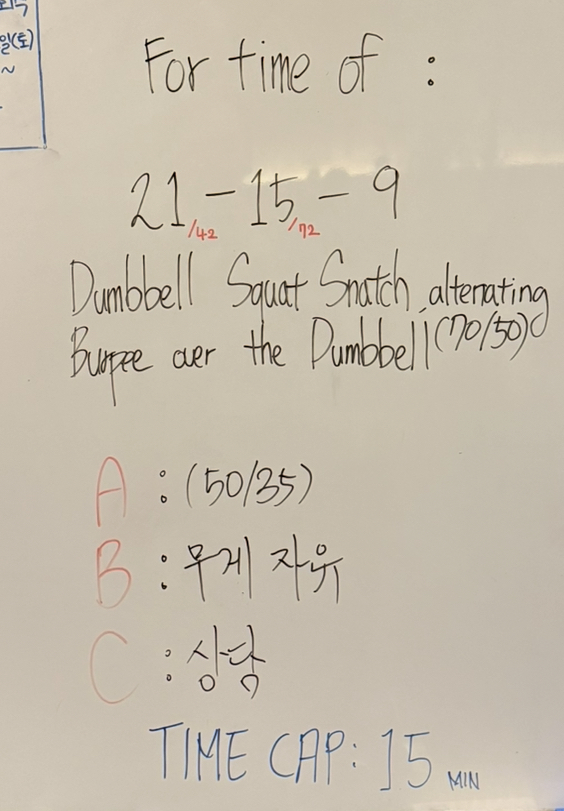 일(토)
~
For time of :
21 - 15 - 9
/42 /72
Dumbbell Squat Snatch, alternating
Burpee over the Dumbbell (70/50)
A : (50/35)
B : 무게 자유
C : 상담
TIME CAP: 15 MIN